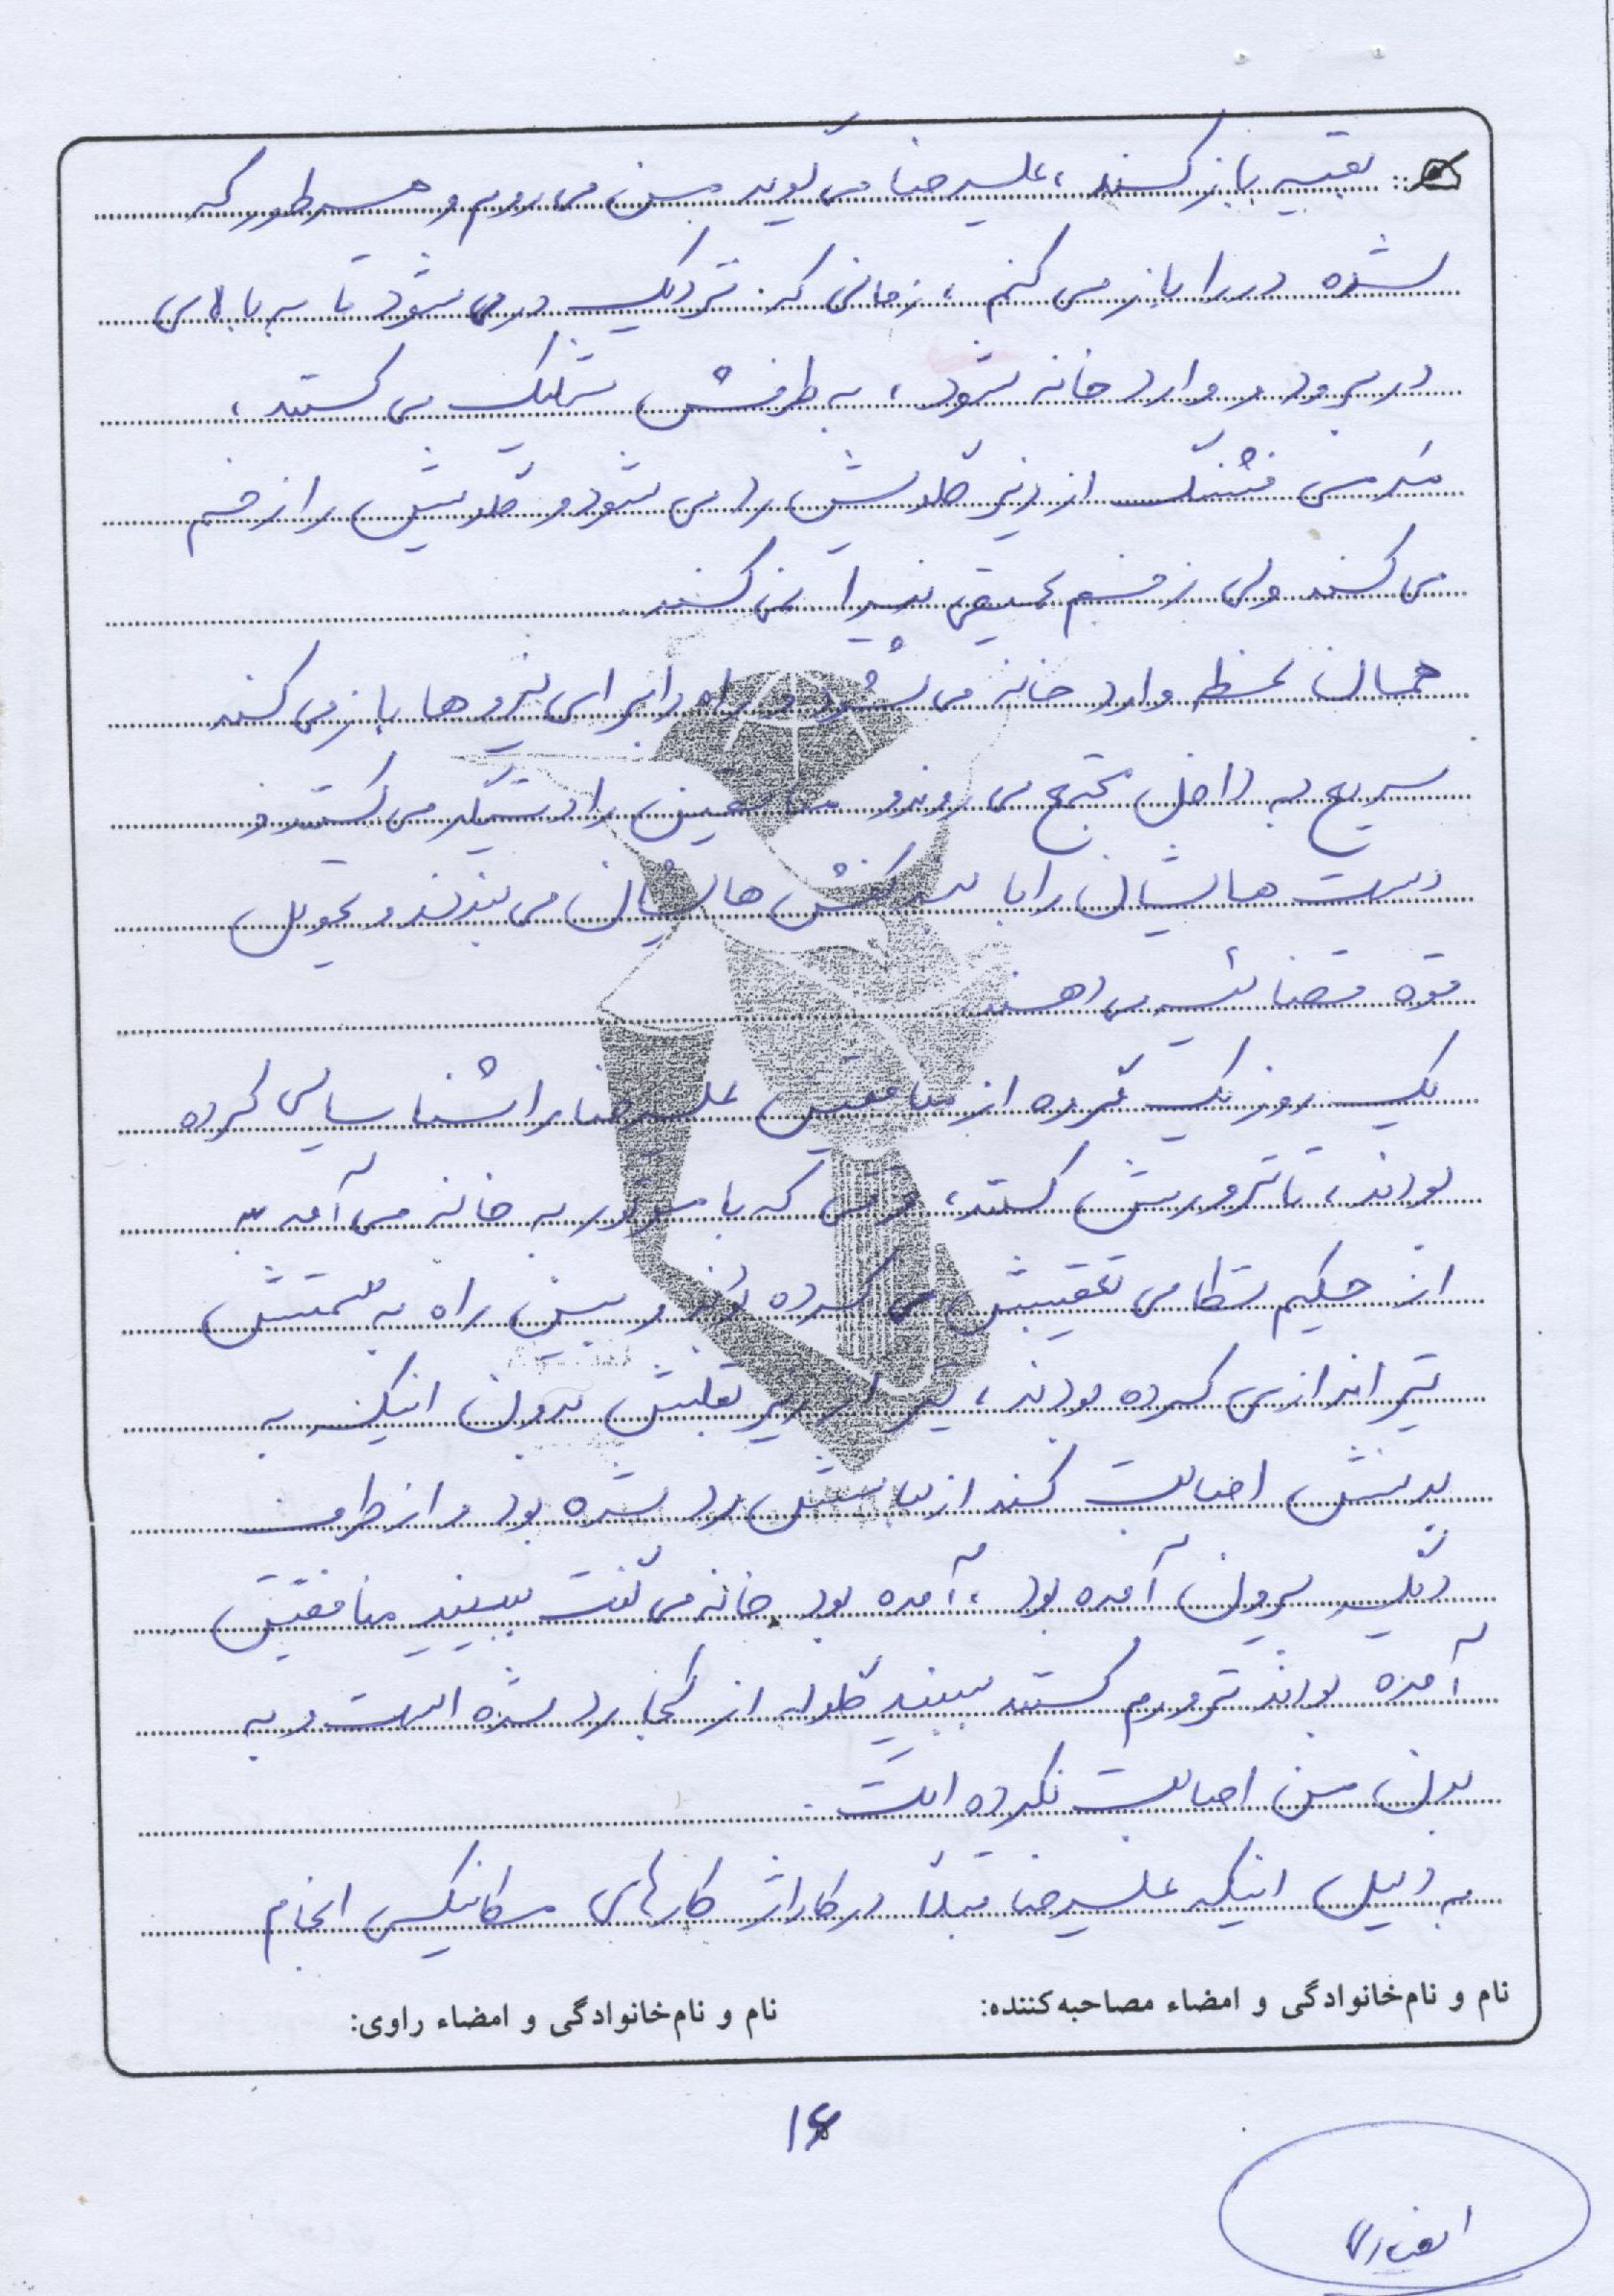 بقیه باز کنند، علیرضا می گوید من می روم و هر طور که
شده در را باز می کنم، زمانی که نزدیک در می شود تا به بالای
در برود و وارد خانه شود، به طرفش شلیک می کنند،
فشنگ از زیر گلویش رد می شود و گلویش را زخم
می کند ولی زخم عمیقی پیدا نمی کند.
همان لحظه وارد خانه می شود و راه را برای نیروها باز می کند
سریع به داخل مجتمع می روند و منافقین را دستگیر می کنند و
دست هایشان را با بند کفش هایشان می بندند و تحویل
قوه قضائیه می دهند
یک روز یک گروه از منافقین علیرضا را شناسایی کرده
بودند، تا ترورش کنند، وقتی که با موتور به خانه می آمده
از حکیم نظامی تعقیبش می کرده اند و بین راه به سمتش
تیراندازی کرده بودند، تیر از زیر بغلش بدون اینکه به
بدنش اصابت کند از لباسش رد شده بود و از طرف
دیگر بیرون آمده بود، آمده بود خانه می گفت ببینید منافقین
آمده بودند ترورم کنند ببینید گلوله از کجا رد شده است و به
بدن من اصابت نکرده است.
به دلیل اینکه علیرضا قبلاً در گاراژ کارهای مکانیکی انجام
نام و نام‌خانوادگی و امضاء مصاحبه‌کننده:
نام و نام‌خانوادگی و امضاء راوی:
۱۶